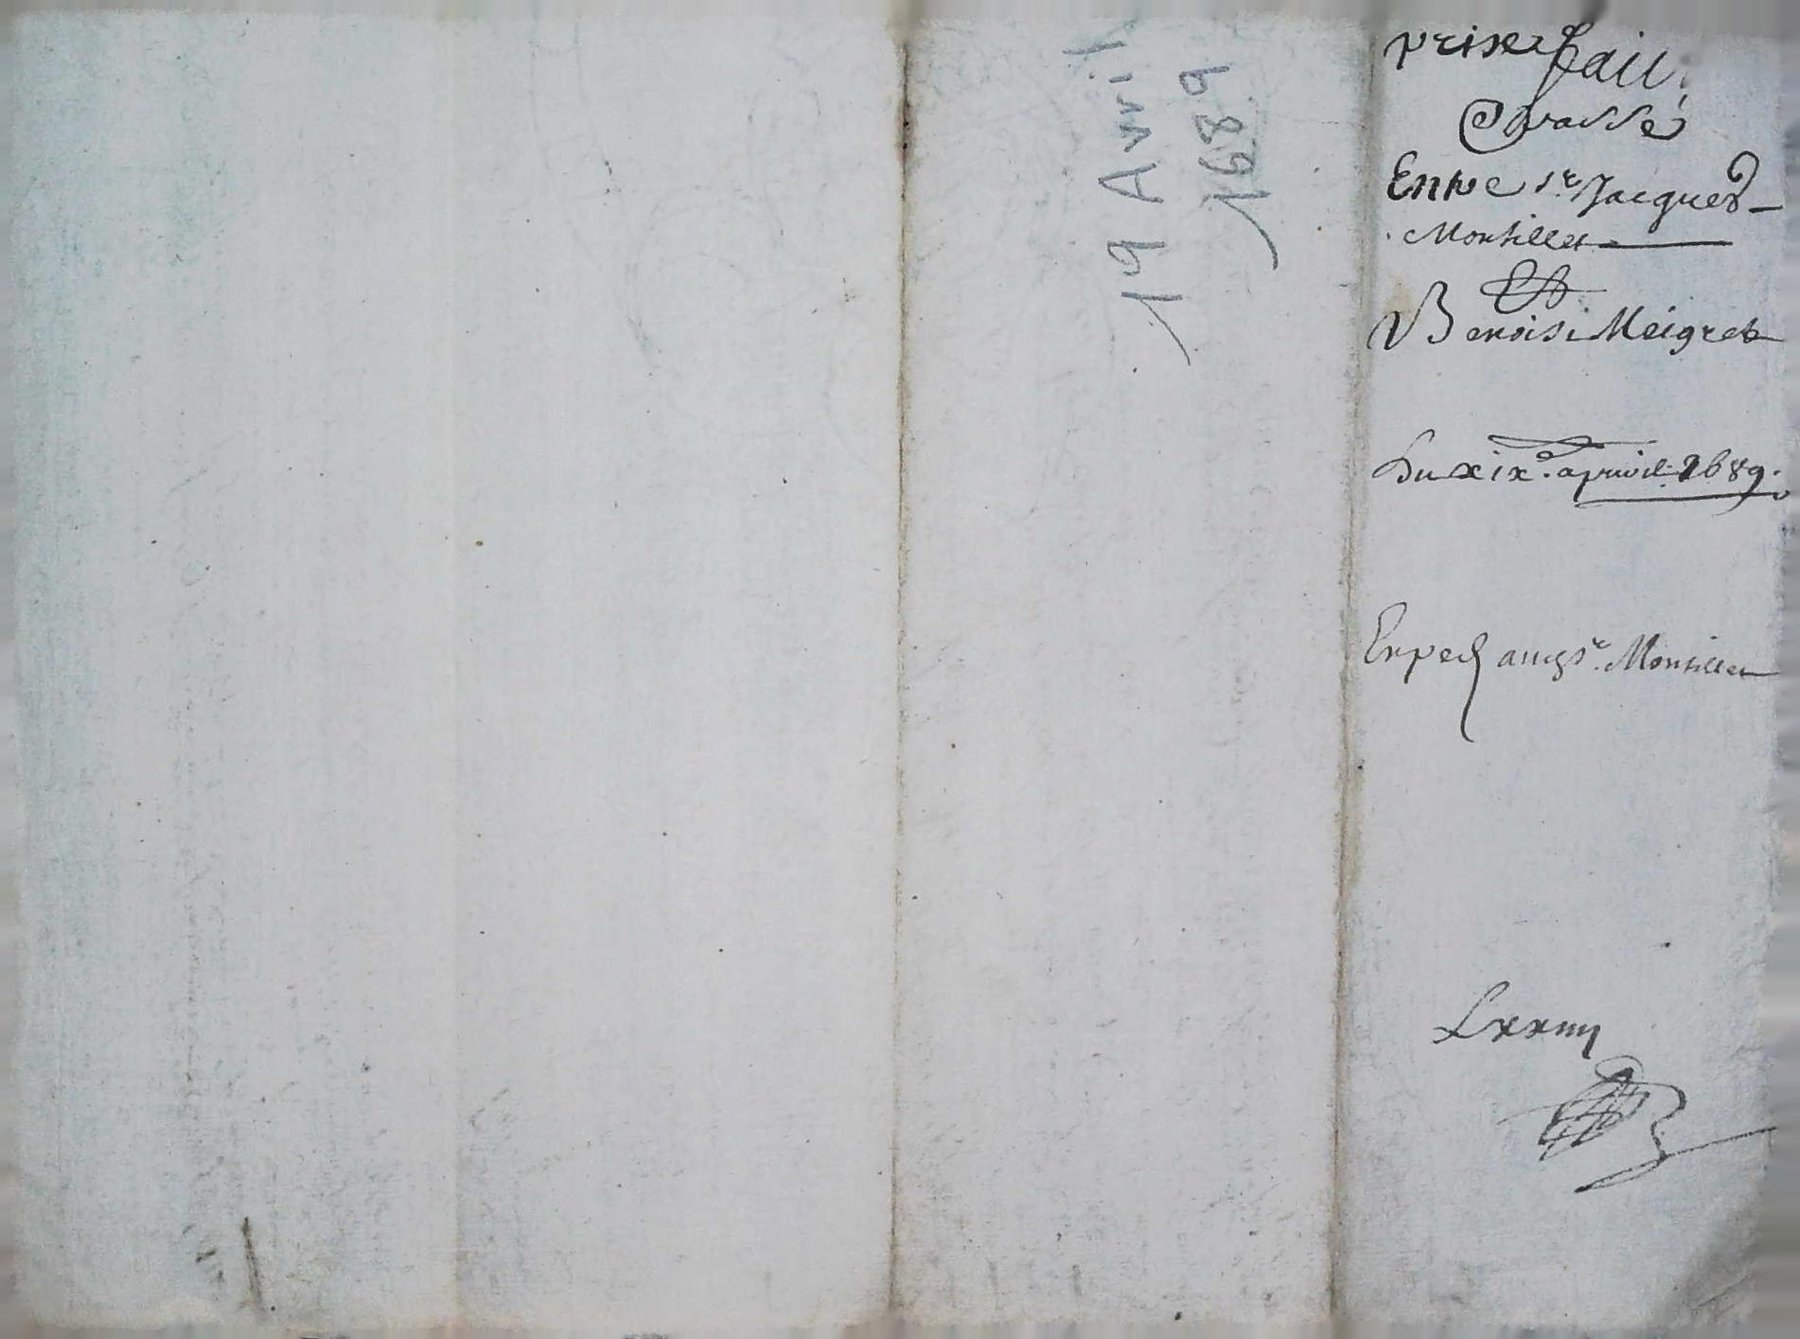 19 Avril
1689
prixfait
passé
Entre sr Jacques
Montillet
Benoist Meigret
Du xixe. apvril 1689.
Exped audsr. Montillet
Lxxiiij